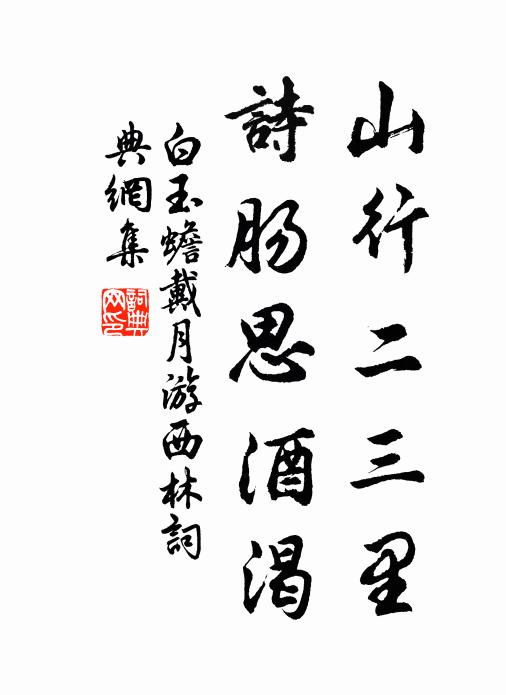 山行二三里
詩肠思酒渴
白玉蟾戴月游西林詞
典網集
詞典網印